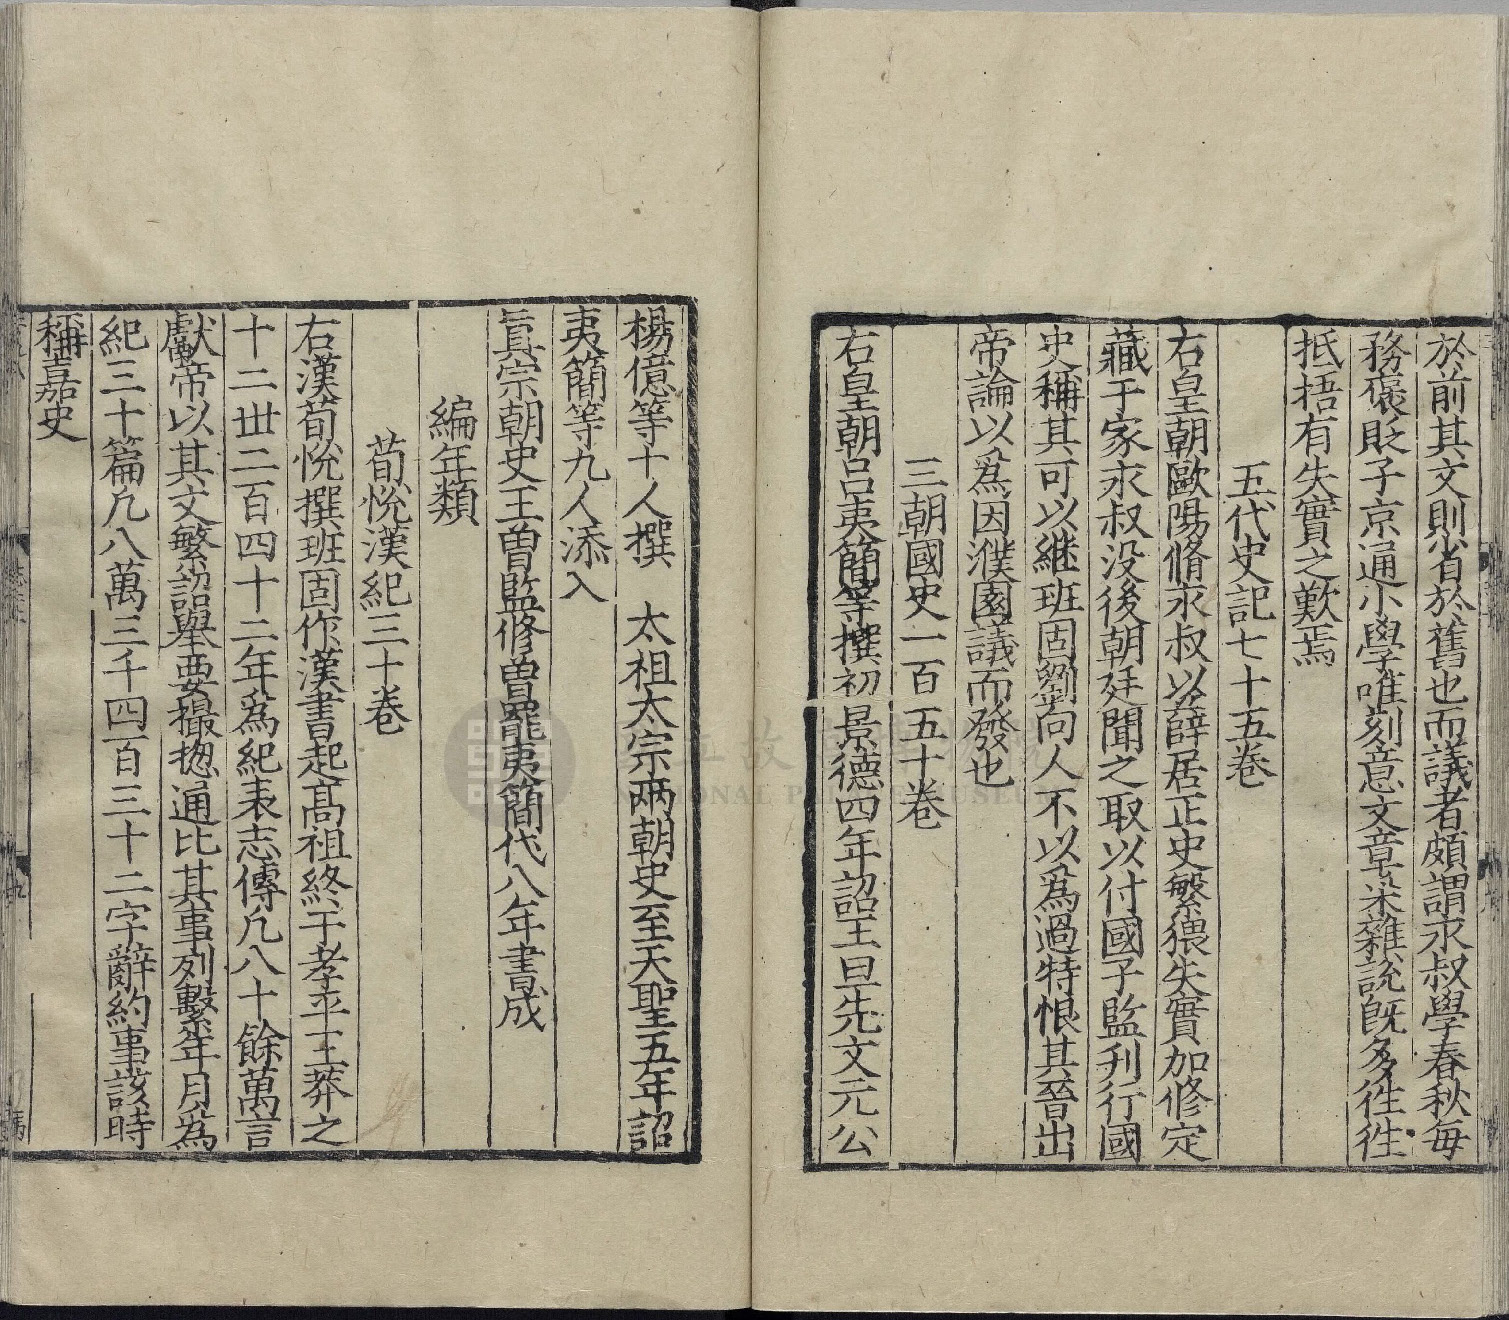 於前其文則省於舊也而議者頗謂永叔學春秋每
務襃貶子京通小學唯刻意文章采雜說既多徃徃
抵捂有失實之歎焉
五代史記七十五卷
右皇朝歐陽脩永叔以薛居正史繁猥失實加修定
藏于家永叔没後朝廷聞之取以付國子監刋行國
史稱其可以継班固劉向人不以爲過特恨其晉出
帝論以爲因濮園議而發也
三朝國史一百五十卷
右皇朝吕夷簡等撰初景德四年詔王旦先文元公
楊億等十人撰　太祖太宗兩朝史至天聖五年詔
夷簡等九人添入
眞宗朝史王曽監修曽罷夷簡代八年書成
編年類
荀恱漢紀三十卷
右漢荀恱撰班固作漢書起髙祖終于孝平王莽之
十二丗二百四十二年爲紀表志傳凢八十餘萬言
獻帝以其文繁詔舉要撮揔通比其事列繫年月爲
紀三十篇凢八萬三千四百三十二字辭約事該時
稱嘉史
NATIONAL PALACE MUSEUM